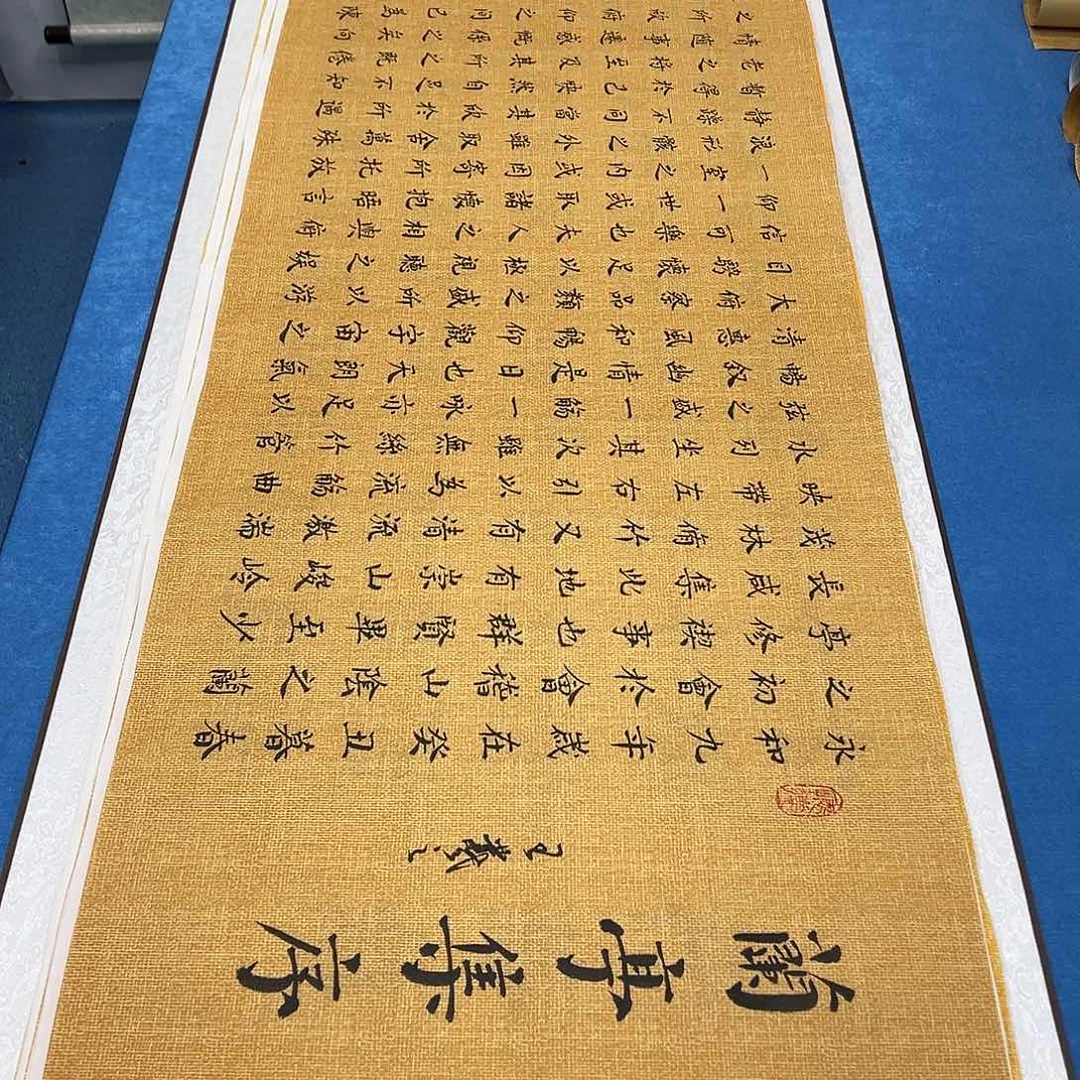 蘭亭集序
王羲之
永和九年歲在癸丑暮春
之初會於會稽山陰之蘭
亭修禊事也群賢畢至少
長咸集此地有崇山峻岭
茂林脩竹又有清流激湍
映帶左右引以為流觴曲
水列坐其次雖無絲竹管
弦之盛一觴一咏亦足以
暢敘幽情是日也天朗氣
清惠風和暢仰觀宇宙之
大俯察品類之盛所以游
目騁懷足以極視聽之娛
信可樂也夫人之相與俯
仰一世或取諸懷抱晤言
一室之內或因寄所托放
浪形骸之外雖取舍萬殊
静躁不同當其欣於所遇
暫得於己快然自足不知
老之將至及其所之既倦
情隨事遷感慨係之矣向
之所俯仰之間已為陳